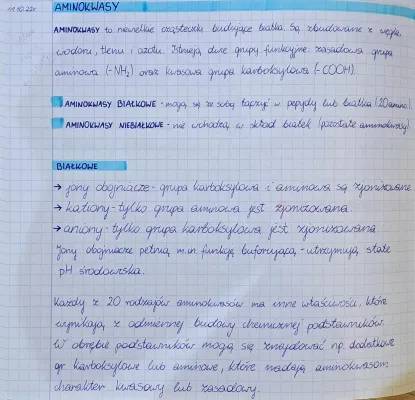 11.10.22r.
AMINOKWASY
AMINOKWASY to niewielkie cząsteczki budujące białka. Są zbudowane z węgla,
wodoru, tlenu i azotu. Istnieją dwie grupy funkcyjne: zasadowa grupa
aminowa (-NH₂) oraz kwasowa grupa karboksylowa (-COOH).
AMINOKWASY BIAŁKOWE - mogą się ze sobą łączyć w peptydy lub białka (20 amino.)
AMINOKWASY NIEBIAŁKOWE - nie wchodzą w skład białek (pozostałe aminokwasy)
BIAŁKOWE
→ jony obojnacze - grupa karboksylowa i aminowa są zjonizowane
→ kationy - tylko grupa aminowa jest zjonizowana.
→ aniony - tylko grupa karboksylowa jest zjonizowana
Jony obojnacze pełnią m.in. funkcję buforującą, - utrzymują stałe
pH środowiska.
Każdy z 20 rodzajów aminokwasów ma inne właściwości, które
wynikają z odmiennej budowy chemicznej podstawników.
W obrębie podstawników mogą się znajdować np. dodatkowe
gr. karboksylowe lub aminowe, które nadają aminokwasom
charakter kwasowy lub zasadowy.